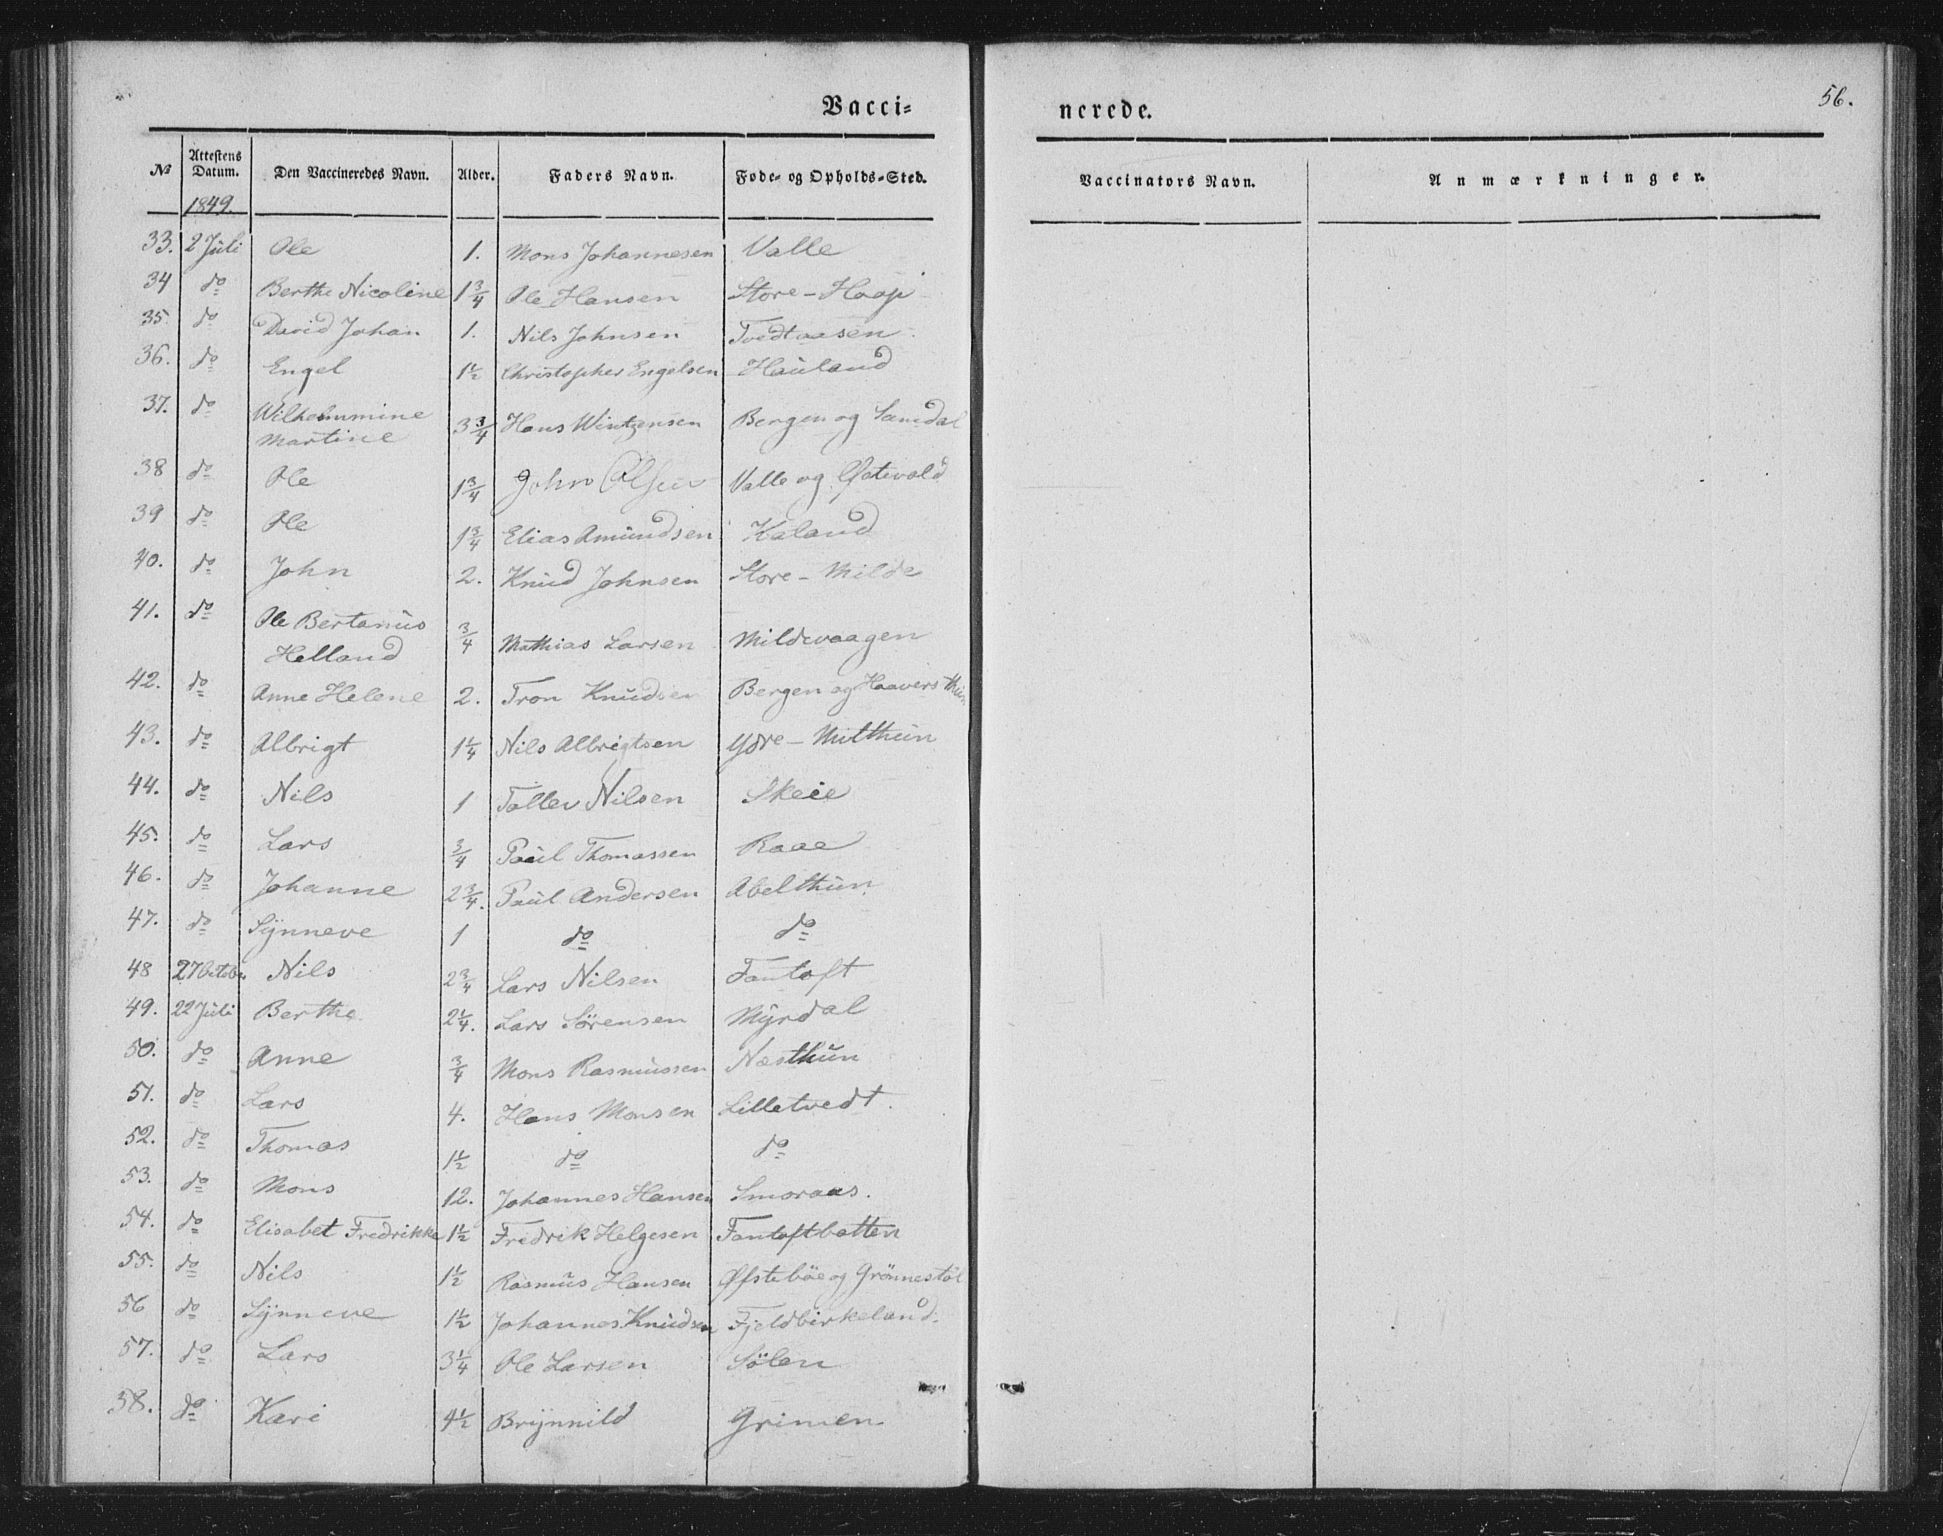 Vacci=
nerede.
56.
No Attestens Datum. Den Vaccineredes Navn. Alder. Faders Navn. Føde= og Opholds=Sted. Vaccinators Navn. Anmærkninger.
1849.
33. 2 Juli Ole 1. Mons Johannesen Valle
34 do Berthe Nicoline 1 3/4 Ole Hansen Store-Haap
35. do David Johan 1. Nils Johnsen Tvedtaasen
36. do Engel 1 1/2 Christopher Engelsen Hauland
37. do Wilhelmmine 3 3/4 Hans Wintzensen Bergen og Samdal
Martine
38 do Ole 1 3/4 John Olsen Valle og Østevold
39 do Ole 1 3/4 Elias Amundsen Kaland
40. do John 2. Knud Johnsen Store-Milde
41. do Ole Bertanus 3/4 Mathias Larsen Mildevaagen
Helland
42. do Anne Helene 2. Tron Knudsen Bergen og Haaversthun
43. do Albrigt 1 1/4 Nils Albrigtsen Ydre-Milthun
44. do Nils 1 Tollev Nilsen Skeie
45. do Lars 3/4 Paul Thomassen Raae
46. do Johanne 2 3/4. Paul Andersen Abelthun
47. do Synneve 1 do do
48 27 October Nils 2 3/4 Lars Nilsen Fantoft
49. 22 Juli Berthe 2 1/4. Lars Sørensen Myrdal
50. do Anne 3/4 Mons Rasmussen Næsthun
51. do Lars 4. Hans Monsen Lilletvedt.
52. do Thomas 1 1/2 do do
53. do Mons 12. Johannes Hansen Smoraas.
54. do Elisabet Fredrikke 1 1/2 Fredrik Helgesen Fantoftbotten
55. do Nils 1 1/2 Rasmus Hansen Øfstebøe og Grønnestøl
56 do Synneve 1 1/2 Johannes Knudsen Fjeldbirkeland.
57. do Lars 3 1/4 Ole Larsen Sølen
58. do Kari 4 1/2 Brynnild Grimen